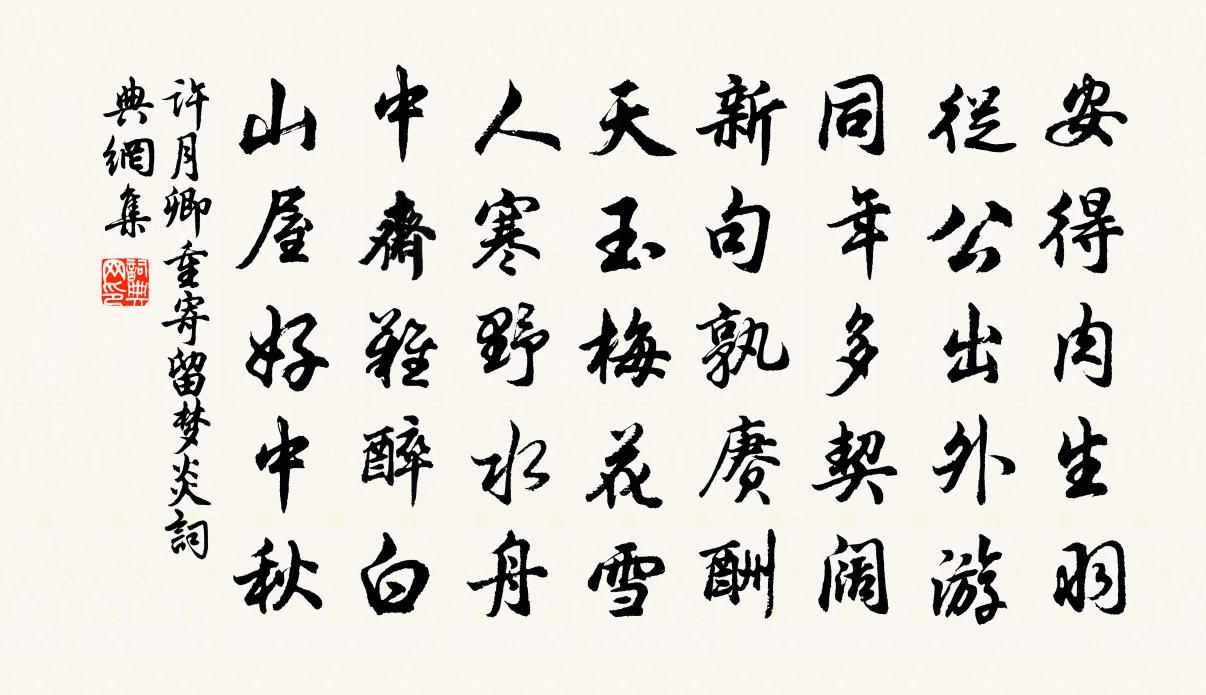 安得肉生羽
從公出外游
同年多契阔
新句孰赓酬
天玉梅花雪
人寒野水舟
中齋難醉白
山屋好中秋
許月卿重寄留梦炎詞
典網集
詞典
网印